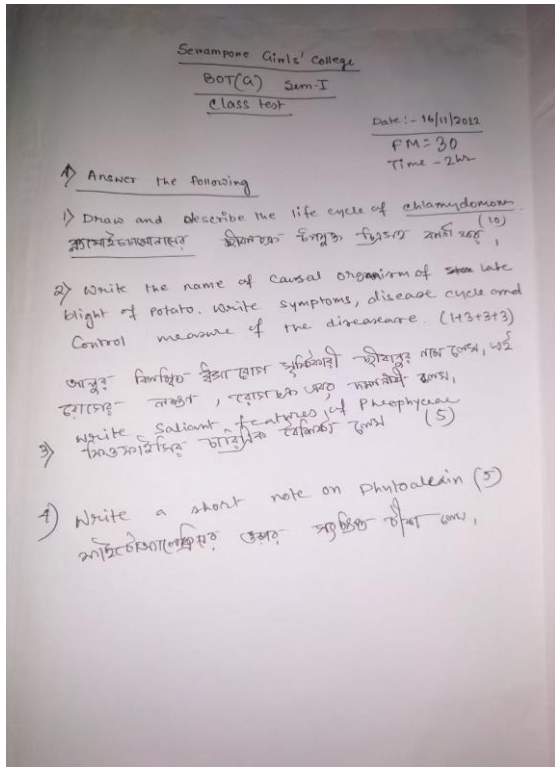 Serampore Girls' College
BOT(G) Sem-I
Class test
Date:- 16/11/2022
FM=30
Time - 2hr
1) Answer the following
1) Draw and describe the life cycle of chlamydomonas
(10)
ক্ল্যামাইডোমোনাসের জীবনচক্র উপযুক্ত চিত্রসহ বর্ণনা করো,
2) Write the name of causal organism of late
blight of potato. Write symptoms, disease cycle and
Control measure of the diseaseare. (1+3+3+3)
আলুর বিলম্বিত ধ্বসা রোগ সৃষ্টিকারী জীবানুর নাম লেখ, এই
রোগের লক্ষণ, রোগচক্র এবং
3) Write Saliant features of Pheophyceae
চারিত্রিক বৈশিষ্ট্য লেখ (5)
4) Write a short note on Phytoalexin (5)
ফাইটোঅ্যালেক্সিনের ওপর সংক্ষিপ্ত টীকা লেখ,